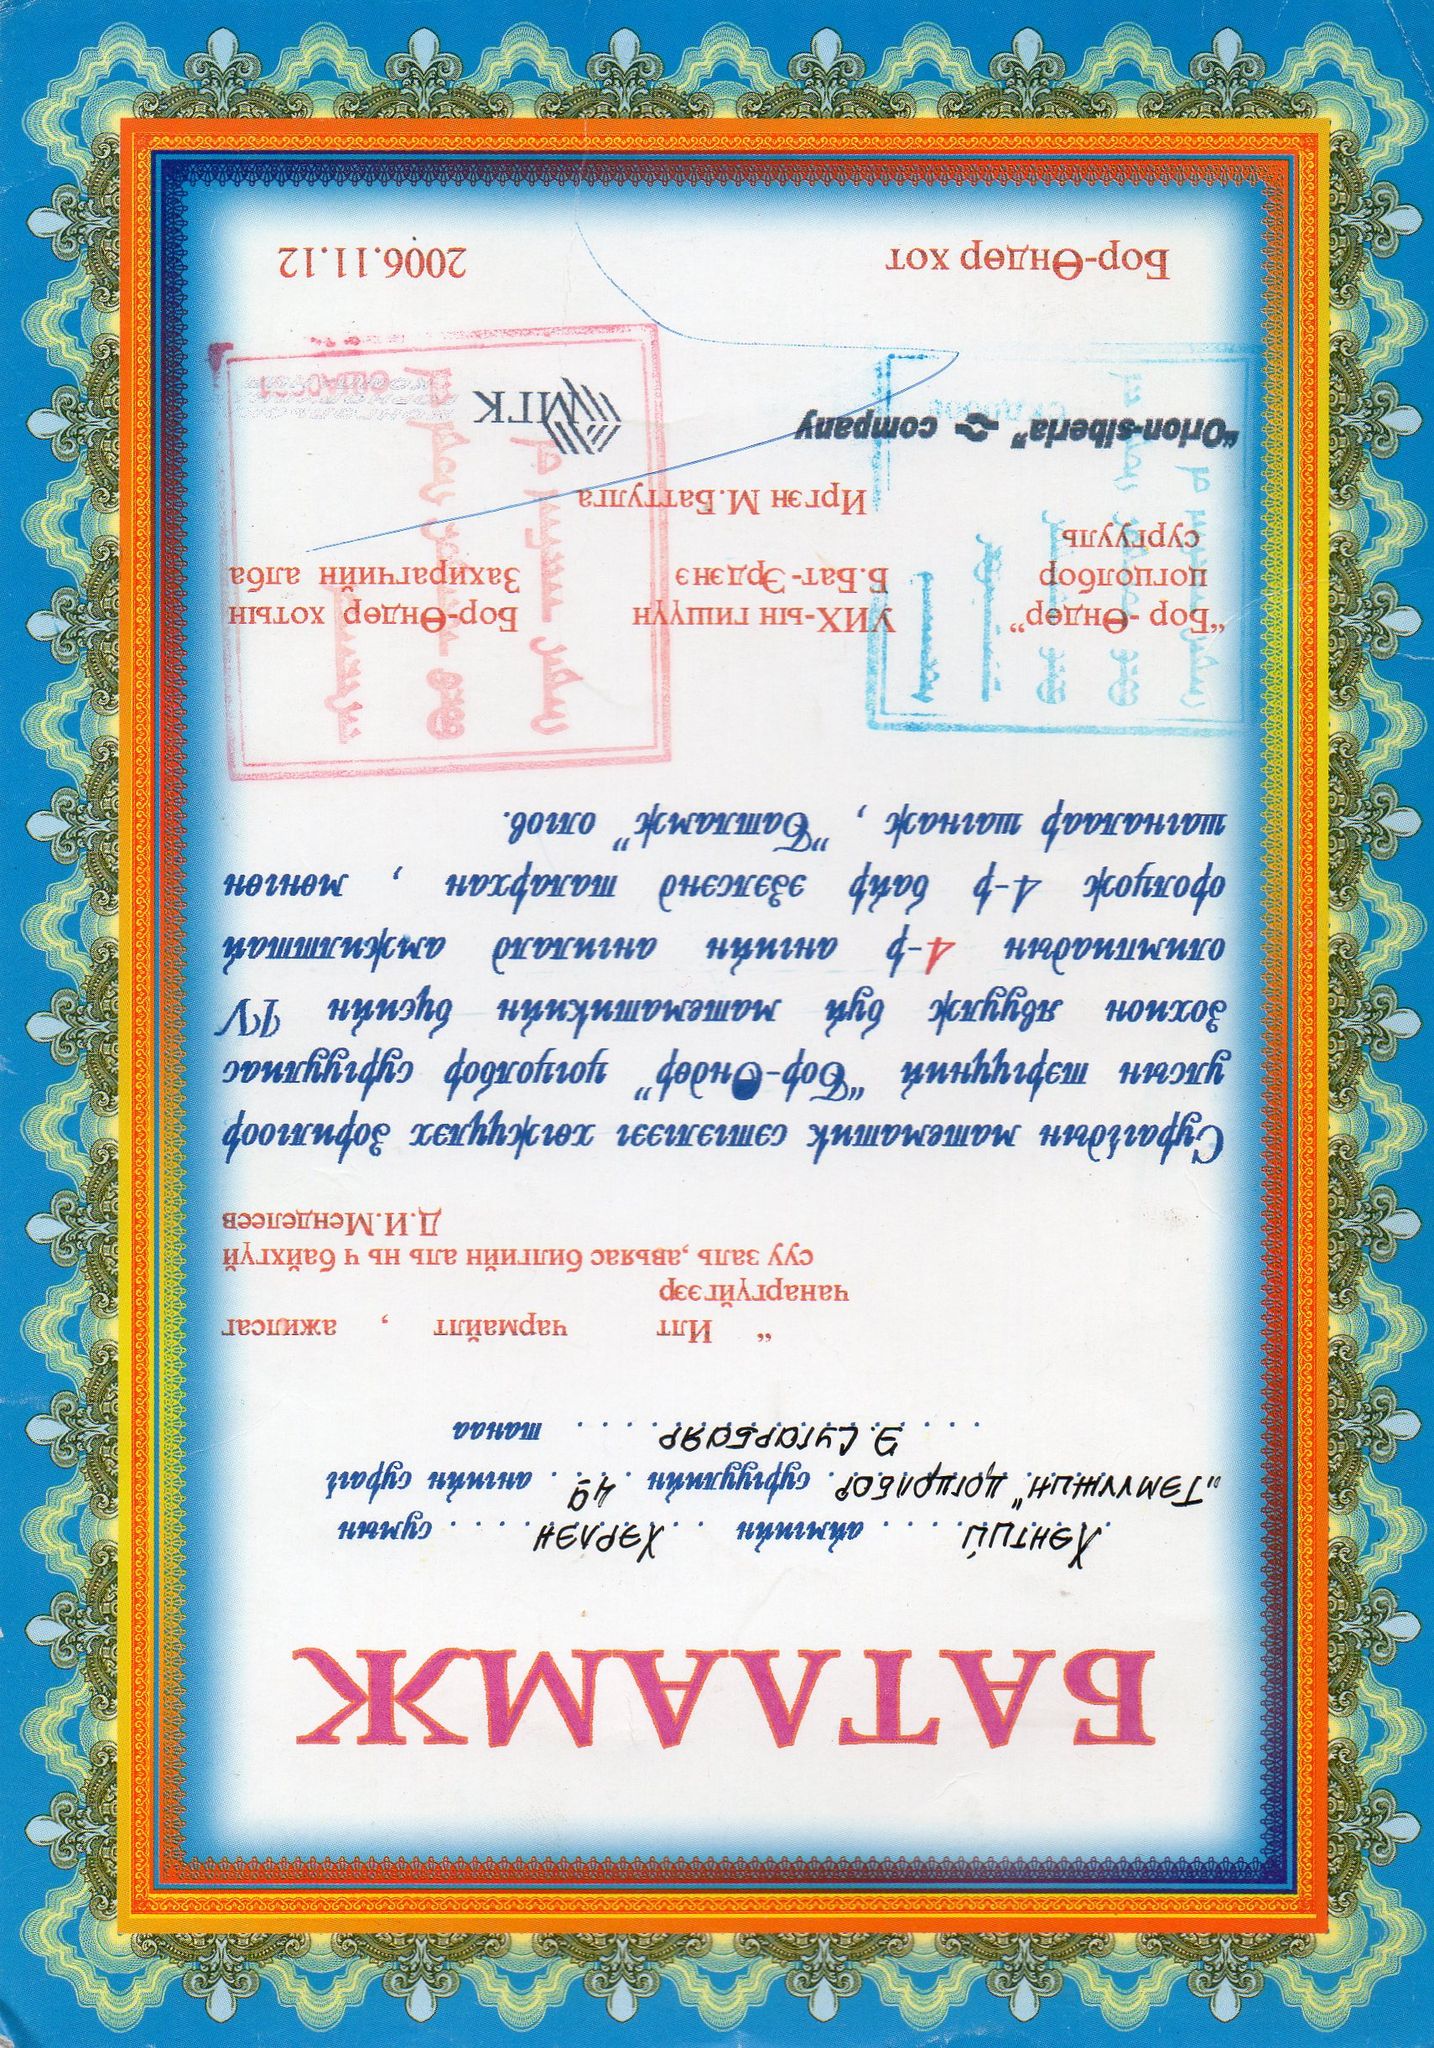 БАТЛАМЖ
Хэнтий аймгийн Хэрлэн сумын
„Тэмүүжин" цогцолбор сургуулийн 4а ангийн сурагч
Э. Сугарбаяр танаа
“ Илт чармайлт , ажилсаг
чанаргүйгээр
суу заль ,авьяас билгийн аль нь ч байхгүй
Д.И.Менделеев
Сурагчдын математик сэтгэлгээг хөгжүүлэх зорилгоор
улсын тэргүүний “Бор-Өндөр” цогцолбор сургуулиас
зохион явуулж буй математикийн бүсийн IV
олимпиадын 4-р ангийн ангилалд амжилттай
оролцож 4-р байр эзэлсэнд талархан , мөнгөн
шагналаар шагнаж , ”Батламж” олгов.
“Бор -Өндөр” УИХ-ын гишүүн Бор-Өндөр хотын
цогцолбор Б.Бат-Эрдэнэ Захирагчийн алба
сургууль
Иргэн М.Баттулга
“Orion-siberia” company МГК
Бор-Өндөр хот 2006.11.12